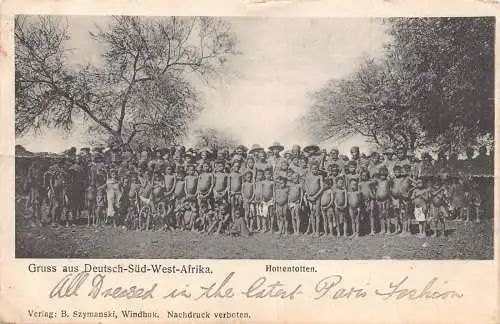 Gruss aus Deutsch-Süd-West-Afrika. Hottentotten.
All Dressed in the latest Paris Fashion
Verlag: B. Szymanski, Windhuk. Nachdruck verboten.